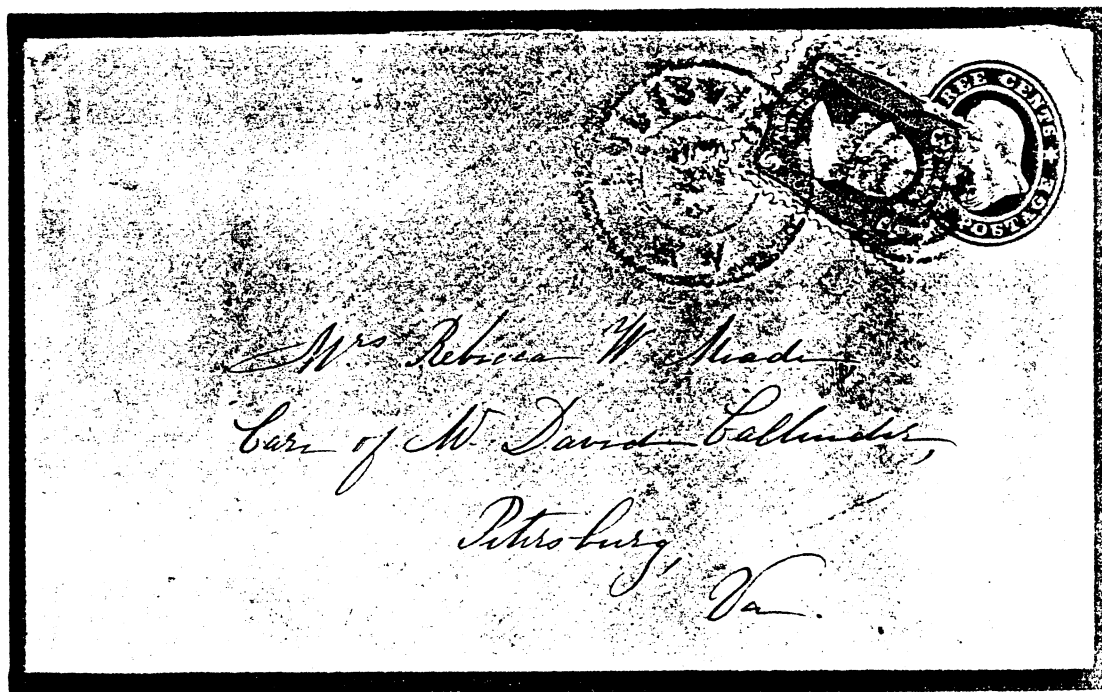 REE CENTS
POSTAGE
Mrs Rebecca W Meade,
Care of Mr David Callender,
Petersburg,
Va.